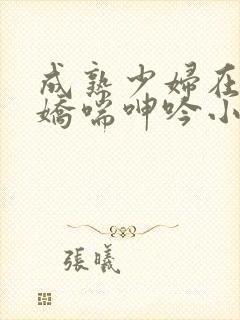 成熟少婦在
嬌喘呻吟小
張曦